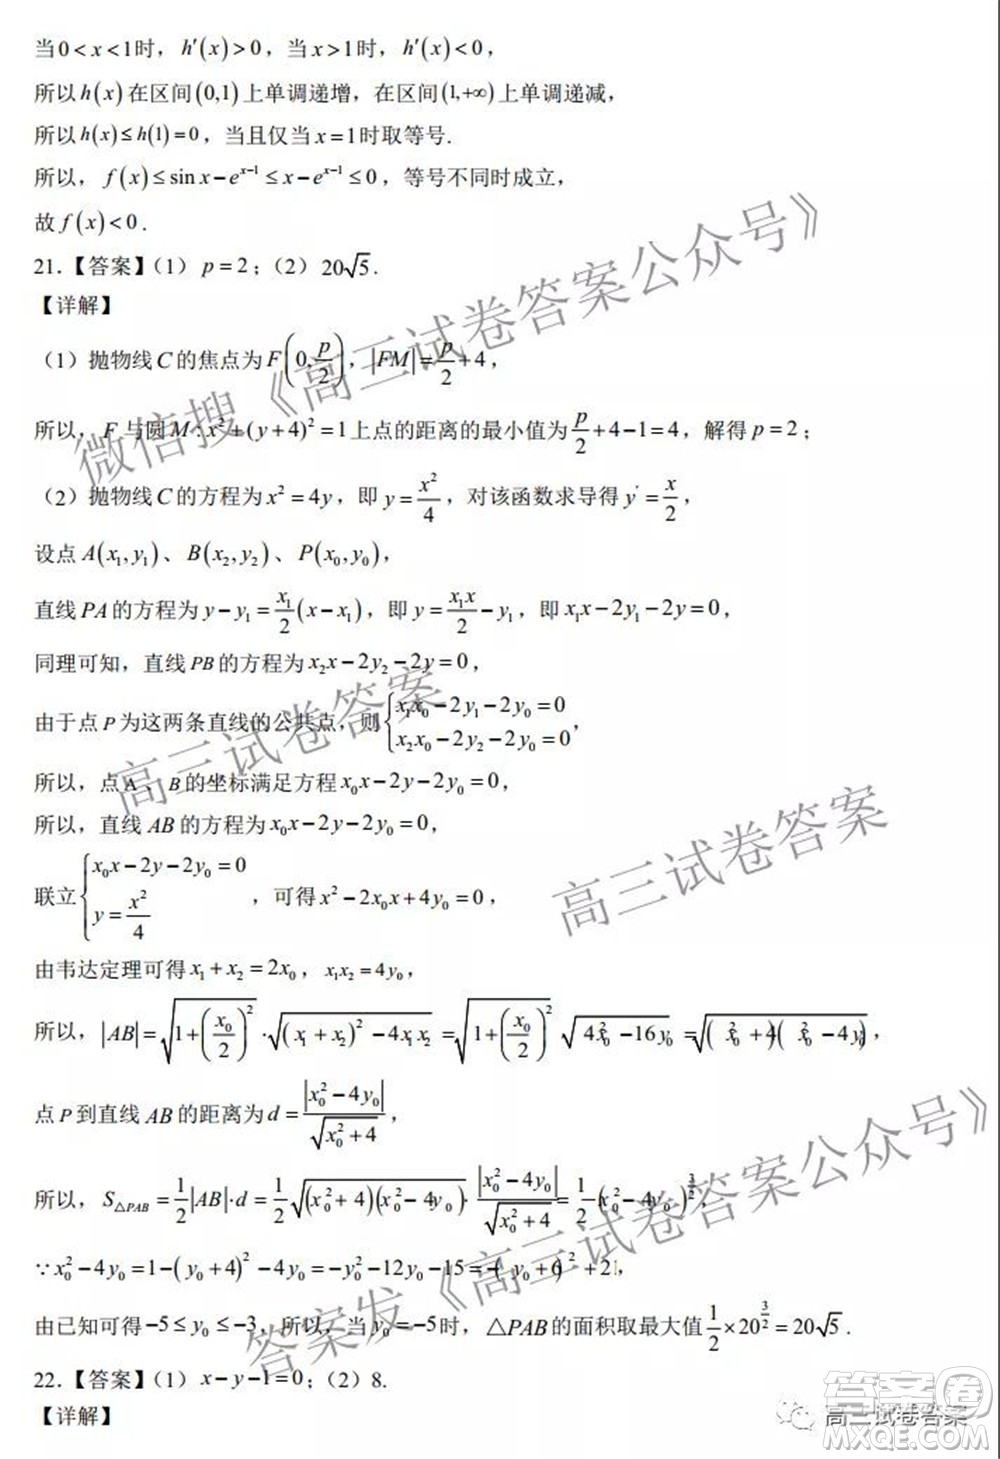 当0<x<1时，h′(x)>0，当x>1时，h′(x)<0，
所以h(x)在区间(0,1)上单调递增，在区间(1,+∞)上单调递减，
所以h(x)≤h(1)=0，当且仅当x=1时取等号.
所以，f(x)≤sin x−e^{x−1}≤x−e^{x−1}≤0，等号不同时成立，
故f(x)<0.
21.【答案】（1）p=2；（2）20√5.
【详解】
（1）抛物线C的焦点为F(0,p/2)，|FM|=p/2+4，
所以，F与圆M:x²+(y+4)²=1上点的距离的最小值为p/2+4−1=4，解得p=2；
（2）抛物线C的方程为x²=4y，即y=x²/4，对该函数求导得y′=x/2，
设点A(x₁,y₁)、B(x₂,y₂)、P(x₀,y₀)，
直线PA的方程为y−y₁=x₁/2(x−x₁)，即y=x₁x/2−y₁，即x₁x−2y₁−2y=0，
同理可知，直线PB的方程为x₂x−2y₂−2y=0，
由于点P为这两条直线的公共点，则{x₁x₀−2y₁−2y₀=0
x₂x₀−2y₂−2y₀=0，
所以，点A、B的坐标满足方程x₀x−2y−2y₀=0，
所以，直线AB的方程为x₀x−2y−2y₀=0，
联立{x₀x−2y−2y₀=0
y=x²/4，可得x²−2x₀x+4y₀=0，
由韦达定理可得x₁+x₂=2x₀，x₁x₂=4y₀，
所以，|AB|=√(1+(x₀/2)²)·√((x₁+x₂)²−4x₁x₂)=√(1+(x₀/2)²)·√(4x₀²−16y₀)=√((x₀²+4)(x₀²−4y₀))，
点P到直线AB的距离为d=|x₀²−4y₀|/√(x₀²+4)，
所以，S△PAB=1/2|AB|·d=1/2√((x₀²+4)(x₀²−4y₀))·|x₀²−4y₀|/√(x₀²+4)=1/2(x₀²−4y₀)^{3/2}，
∵x₀²−4y₀=1−(y₀+4)²−4y₀=−y₀²−12y₀−15=−(y₀+6)²+21，
由已知可得−5≤y₀≤−3，所以，当y₀=−5时，△PAB的面积取最大值1/2×20^{3/2}=20√5.
22.【答案】（1）x−y−1=0；（2）8.
【详解】
微信搜《高三试卷答案公众号》
高三试卷答案
高三试卷答案
答案发《高三试卷答案公众号》
高三试卷答案
答案卷
MXQE.COM